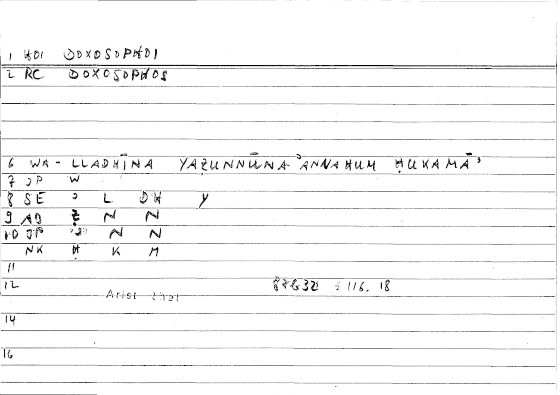 1 HOI DOXOSOPHOI
2 RC DOXOSOPHOS
6 WA-LLADHĪNA YAẒUNNŪNA ʾANNAHUM ḤUKAMĀʾ
7 JP W
8 SE ʾ L DH Y
9 AD Ẓ N N
10 JP N N
NK Ḥ K M
11
12 116. 18
Arist
14
16